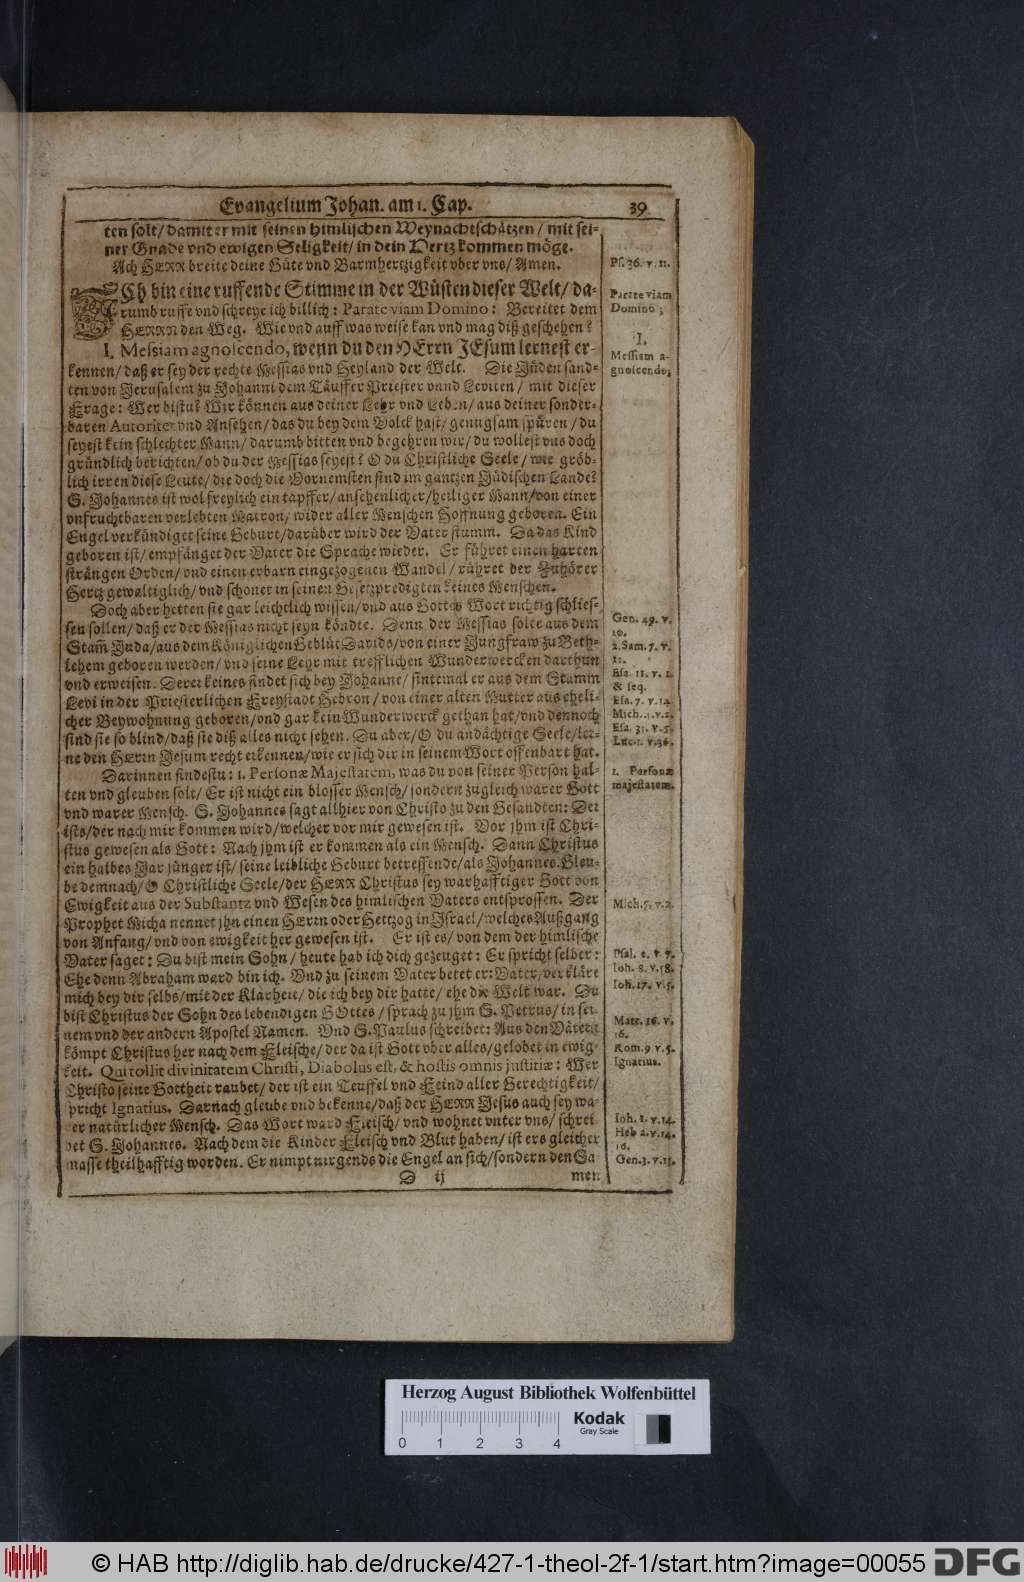 Evangelium Johan. am 1. Cap. 39
ten solt/ damit er mit seinen himlischen Weynachtschätzen/ mit sei-
ner Gnade vnd ewigen Seligkeit/ in dein Hertz kommen möge.
Ach HERR breite deine Güte vnd Barmhertzigkeit vber vns/ Amen.
Ps. 36. v. 11.
ICh bin eine ruffende Stimme in der Wüsten dieser Welt/ da-
rumb ruffe vnd schreye ich billich: Parate viam Domino: Bereitet dem
HERRN den Weg. Wie vnd auff was weise kan vnd mag diß geschehen?
Parate viam
Domino;
I. Messiam agnoscendo, wenn du den HErrn JEsum lernest er-
kennen/ daß er sey der rechte Messias vnd Heyland der Welt. Die Jüden sand-
ten von Jerusalem zu Johanni dem Täuffer Priester vnnd Leviten/ mit dieser
Frage: Wer bistu? Wir können aus deiner Lehr vnd Leben/ aus deiner sonder-
baren Autoritet vnd Ansehen/ das du bey dem Volck hast/ genugsam spüren/ du
seyest kein schlechter Mann/ darumb bitten vnd begehren wir/ du wollest vns doch
gründlich berichten/ ob du der Messias seyest? O du Christliche Seele/ wie gröb-
lich irren diese Leute/ die doch die Vornemsten sind im gantzen Jüdischen Lande?
S. Johannes ist wol freylich ein tapffer/ ansehenlicher/ heiliger Mann/ von einer
vnfruchtbaren verlebten Matron/ wider aller Menschen Hoffnung geboren. Ein
Engel verkündiget seine Geburt/ darüber wird der Vater stumm. Da das Kind
geboren ist/ empfänget der Vater die Sprache wieder. Er führet einen harten
strängen Orden/ vnd einen erbarn eingezogenen Wandel/ rühret der Zuhörer
Hertz gewaltiglich/ vnd schonet in seinen Gesetzpredigten keines Menschen.
I.
Messiam a-
gnoscendo;
Doch aber hetten sie gar leichtlich wissen/ vnd aus Gottes Wort richtig schlies-
sen sollen/ daß er der Messias nicht seyn köndte. Denn der Messias solte aus dem
Stam̃ Juda/ aus dem Königlichen Geblüt Davids/ von einer Jungfraw zu Beth-
lehem geboren werden/ vnd seine Lehr mit trefflichen Wunderwercken darthun
vnd erweisen. Deret keines findet sich bey Johanne/ sintemal er aus dem Stamm
Levi in der Priesterlichen Freystadt Hebron/ von einer alten Mutter aus eheli-
cher Beywohnung geboren/ vnd gar kein Wunderwerck gethan hat/ vnd dennoch
sind sie so blind/ daß sie diß alles nicht sehen. Du aber/ O du andächtige Seele/ ler-
ne den HErrn Jesum recht erkennen/ wie er sich dir in seinem Wort offenbart hat.
Gen. 49. v.
10.
2. Sam. 7. v.
12.
Esa. 11. v. 1.
& seq.
Esa. 7. v. 14
Mich. 5. v. 2.
Esa. 35. v. 5.
Luc. 1. v. 36.
Darinnen findestu: 1. Personæ Majestatem, was du von seiner Person hal-
ten vnd gleuben solt/ Er ist nicht ein blosser Mensch/ sondern zugleich warer Gott
vnd warer Mensch. S. Johannes sagt allhier von Christo zu den Gesandten: Der
ists/ der nach mir kommen wird/ welcher vor mir gewesen ist. Vor jhm ist Chri-
stus gewesen als Gott: Nach jhm ist er kommen als ein Mensch. Dann Christus
ein halbes Jar jünger ist/ seine leibliche Geburt betreffende/ als Johannes. Gleu-
be demnach/ O Christliche Seele/ der HERR Christus sey warhafftiger Gott von
Ewigkeit aus der Substantz vnd Wesen des himlischen Vaters entsprossen. Der
Prophet Micha nennet jhn einen HErrn oder Hertzog in Israel/ welches Außgang
von Anfang/ vnd von ewigkeit her gewesen ist. Er ist es/ von dem der himlische
Vater saget: Du bist mein Sohn/ heute hab ich dich gezeuget: Er spricht selber:
Ehe denn Abraham ward bin ich. Vnd zu seinem Vater betet er: Vater, verkläre
mich bey dir selbs/ mit der Klarheit/ die ich bey dir hatte/ ehe die Welt war. Du
bist Christus der Sohn des lebendigen GOttes/ sprach zu jhm S. Petrus/ in sei-
nem vnd der andern Apostel Namen. Vnd S. Paulus schreibet: Aus den Vätern
kömpt Christus her nach dem Fleische/ der da ist Gott vber alles/ gelobet in ewig-
keit. Qui tollit divinitatem Christi, Diabolus est, & hostis omnis justitiæ: Wer
Christo seine Gottheit raubet/ der ist ein Teuffel vnd Feind aller Gerechtigkeit/
spricht Ignatius. Darnach gleube vnd bekenne/ daß der HERR Jesus auch sey wa-
er natürlicher Mensch. Das Wort ward Fleisch/ vnd wohnet vnter vns/ schrei
bet S. Johannes. Nach dem die Kinder Fleisch vnd Blut haben/ ist ers gleicher
masse theilhafftig worden. Er nimpt nirgends die Engel an sich/ sondern den Sa
D ij men
1. Personæ
majestatem.
Mich. 5. v. 2.
Psal. 2. v. 7.
Ioh. 8. v. 58.
Ioh. 17. v. 5.
Matt. 16. v.
16.
Rom. 9 v. 5.
Ignatius.
Ioh. 1. v. 14.
Heb 2. v. 14.
16.
Gen. 3. v. 15.
Herzog August Bibliothek Wolfenbüttel
0 1 2 3 4
Kodak
Gray Scale
© HAB http://diglib.hab.de/drucke/427-1-theol-2f-1/start.htm?image=00055 DFG